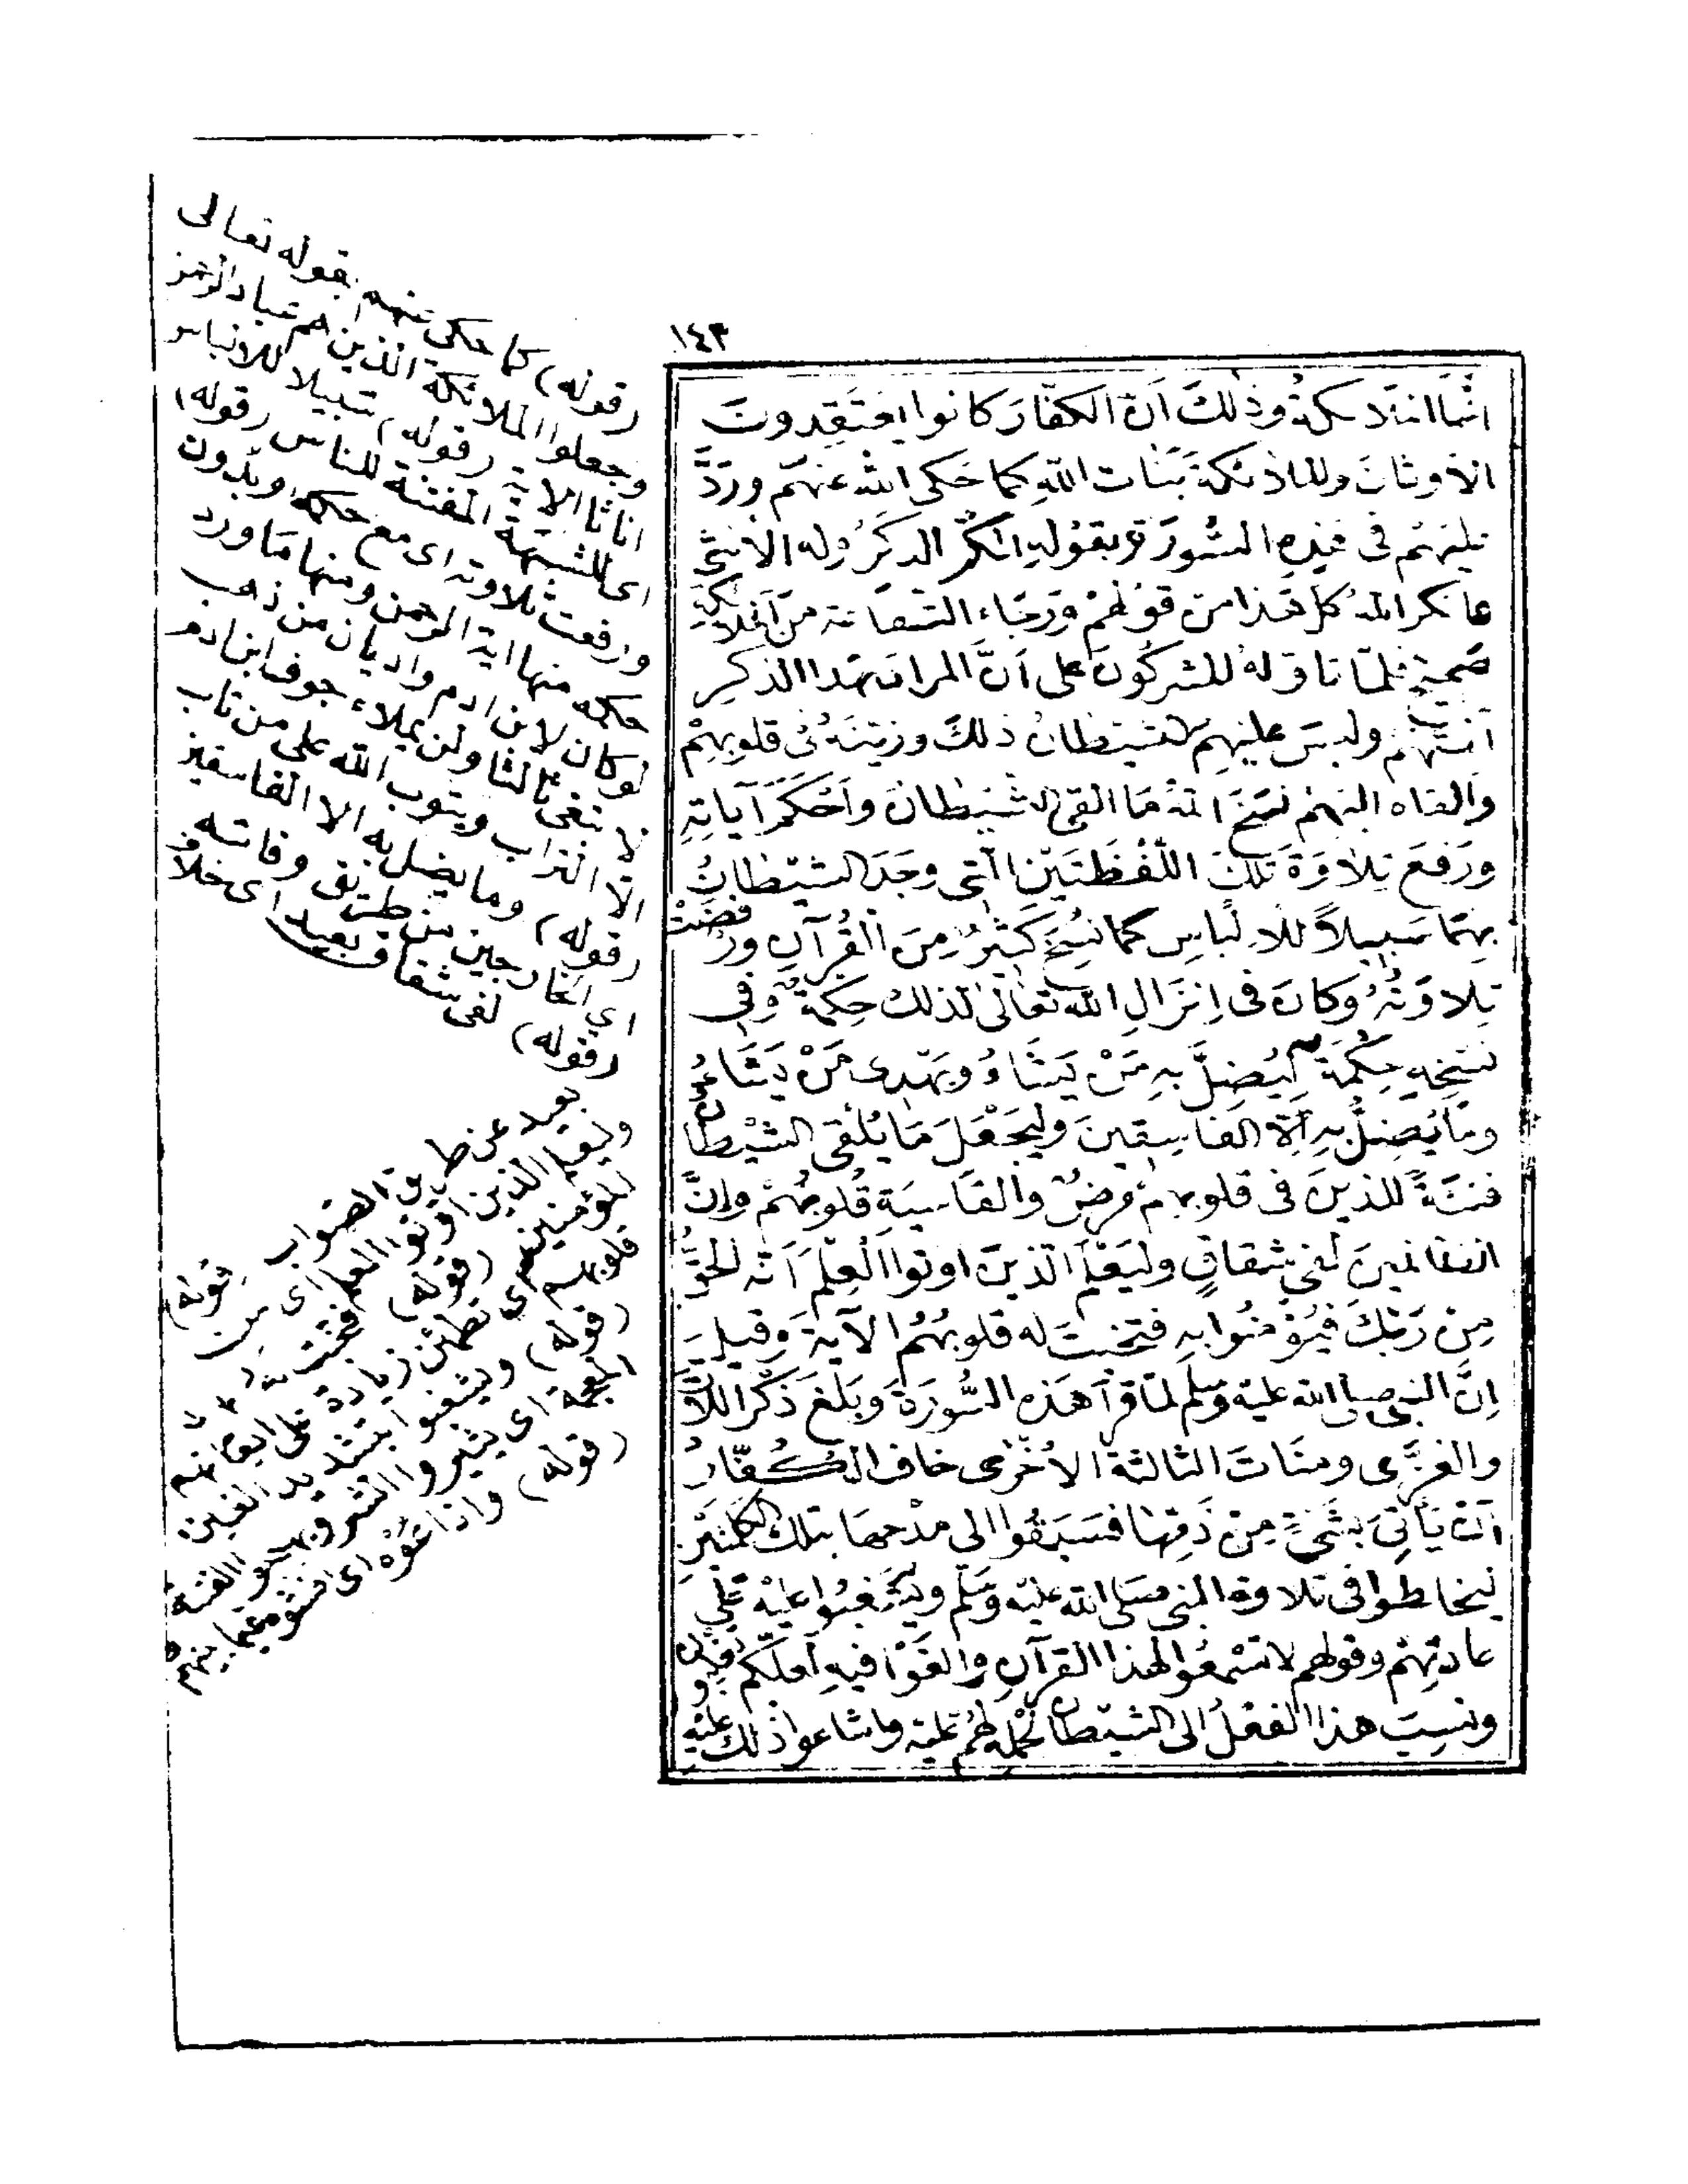 ١٤٣
انها الملائكةُ وذٰلكَ اَنَّ الكفّارَ كانوا يعتَقِدونَ
الاَوثانَ والملائكةَ بَنات اللهِ كما حَكى اللهُ عنهم ورَدَّ
عليهم فى هٰذِهِ السُّورَةِ بقَوْلِهِ الَكُمُ الذكَرُ وله الاُنثى
فانكر اللهُ كلَّ هَذا من قولهمْ ورَجَاء الشفاعة مِنَ الملائكةِ
صَحيحٌ فلمّا تاوّلهُ المشركُونَ على اَنَّ المرادَ بهَذا الذكرِ
آلهتهم ولبسَ عليهِم الشيطانُ ذلكَ وزيّنَهُ فى قلوبِهِمْ
والقاه اليهم نسَخَ اللهُ مَا القى الشيْطانُ واَحْكَمَ آياتِهِ
ورَفعَ تِلاوَةَ تلكَ اللّفْظَتَيْنِ الّتى وجَدَ الشيْطانُ
بهمَا سَبيلاً للالباسِ كما نُسِخَ كثيرٌ مِنَ القُرآنِ ورُفعَتْ
تِلاوَتُهُ وكانَ فى اِنزالِ الله تعَالىٰ لذلك حِكمَةٌ وفى
نسْخِهِ حِكْمَةٌ لِيُضِلَّ بهِ مَنْ يَشَاءُ ويَهْدِى مَنْ يَشَاءُ
ومَا يُضِلُّ بهِ اِلاّ الفاسِقينَ وليَجْعَلَ مَا يُلْقى الشيْطانُ
فتنَةً للذينَ فى قلوبِهِم مرَضٌ والقاسِيَةِ قُلوبُهُمْ وإنَّ
الظالمينَ لفى شقاقٍ وليَعْلَمَ الّذينَ اوتوا العِلمَ اَنّه الحَقُّ
مِنْ رَبّكَ فيُؤْمنُوا بهِ فتُخبِتَ له قلوبُهُمُ الآية وقيلَ
اِنَّ النبى صلى الله عليه وسَلم لمّا قرأ هَذه السُّورَةَ وبَلغَ ذكْرَ اللاّت
والعزَّى ومنَاتَ الثالثةَ الاُخْرٰى خافَ الكُفّارُ
اَنْ يَأتِىَ بشَىْءٍ مِنْ ذَمّها فسَبَقُوا الى مدْحِهَا بتلك الكلمتَيْنِ
ليخلطوا فى تلاوة النبى صَلى الله عليه وسَلم ويُشغِبُوا عليْه عَلى
عادتِهمْ وقولهم لا تسْمعُوا لهذا القرآنِ والغَوْا فيهِ لعلّكُم تغلبون
ونسِبَ هذا الفعْلُ الى الشيْطانِ لحَمْلِهِ لهُمْ عليْهِ واشاعوا ذلك
(قوله) كما حكى عنهم بقوله تعالى
وجعلوا الملائكة الذين هم عباد الرحمن
اناثا الاية (قوله) سبيلا للالباس
اى للشبهة المفتنة للناس (قوله)
ورفعت تلاوته اى مع حكمه او بدون
حكمه منها اية الرحمن ومنها ما ورد
لوكان لابن ادم واديان من ذهب
لابتغى ثالثا ولن يملاء جوف ابن ادم
الا التراب ويتوب الله على من تاب
(قوله) وما يضل به الا الفاسقين
اى الخارجين من طريق وفاته
(قوله) لفى شقاق بعيد اى خلاف
بعيد عن طريق الصواب (قوله)
وليعلم الذين اوتوا العلم اى من
المؤمنين (قوله) فتخبت له
قلوبهم اى تطمئن زيادة على ايمانهم
(قوله) ويشغبوا بتشديد الغين
المعجمة اى يثيروا الشر ويهيجوا الفتنة
(قوله) واذاعوه اى افشوه فيما بينهم